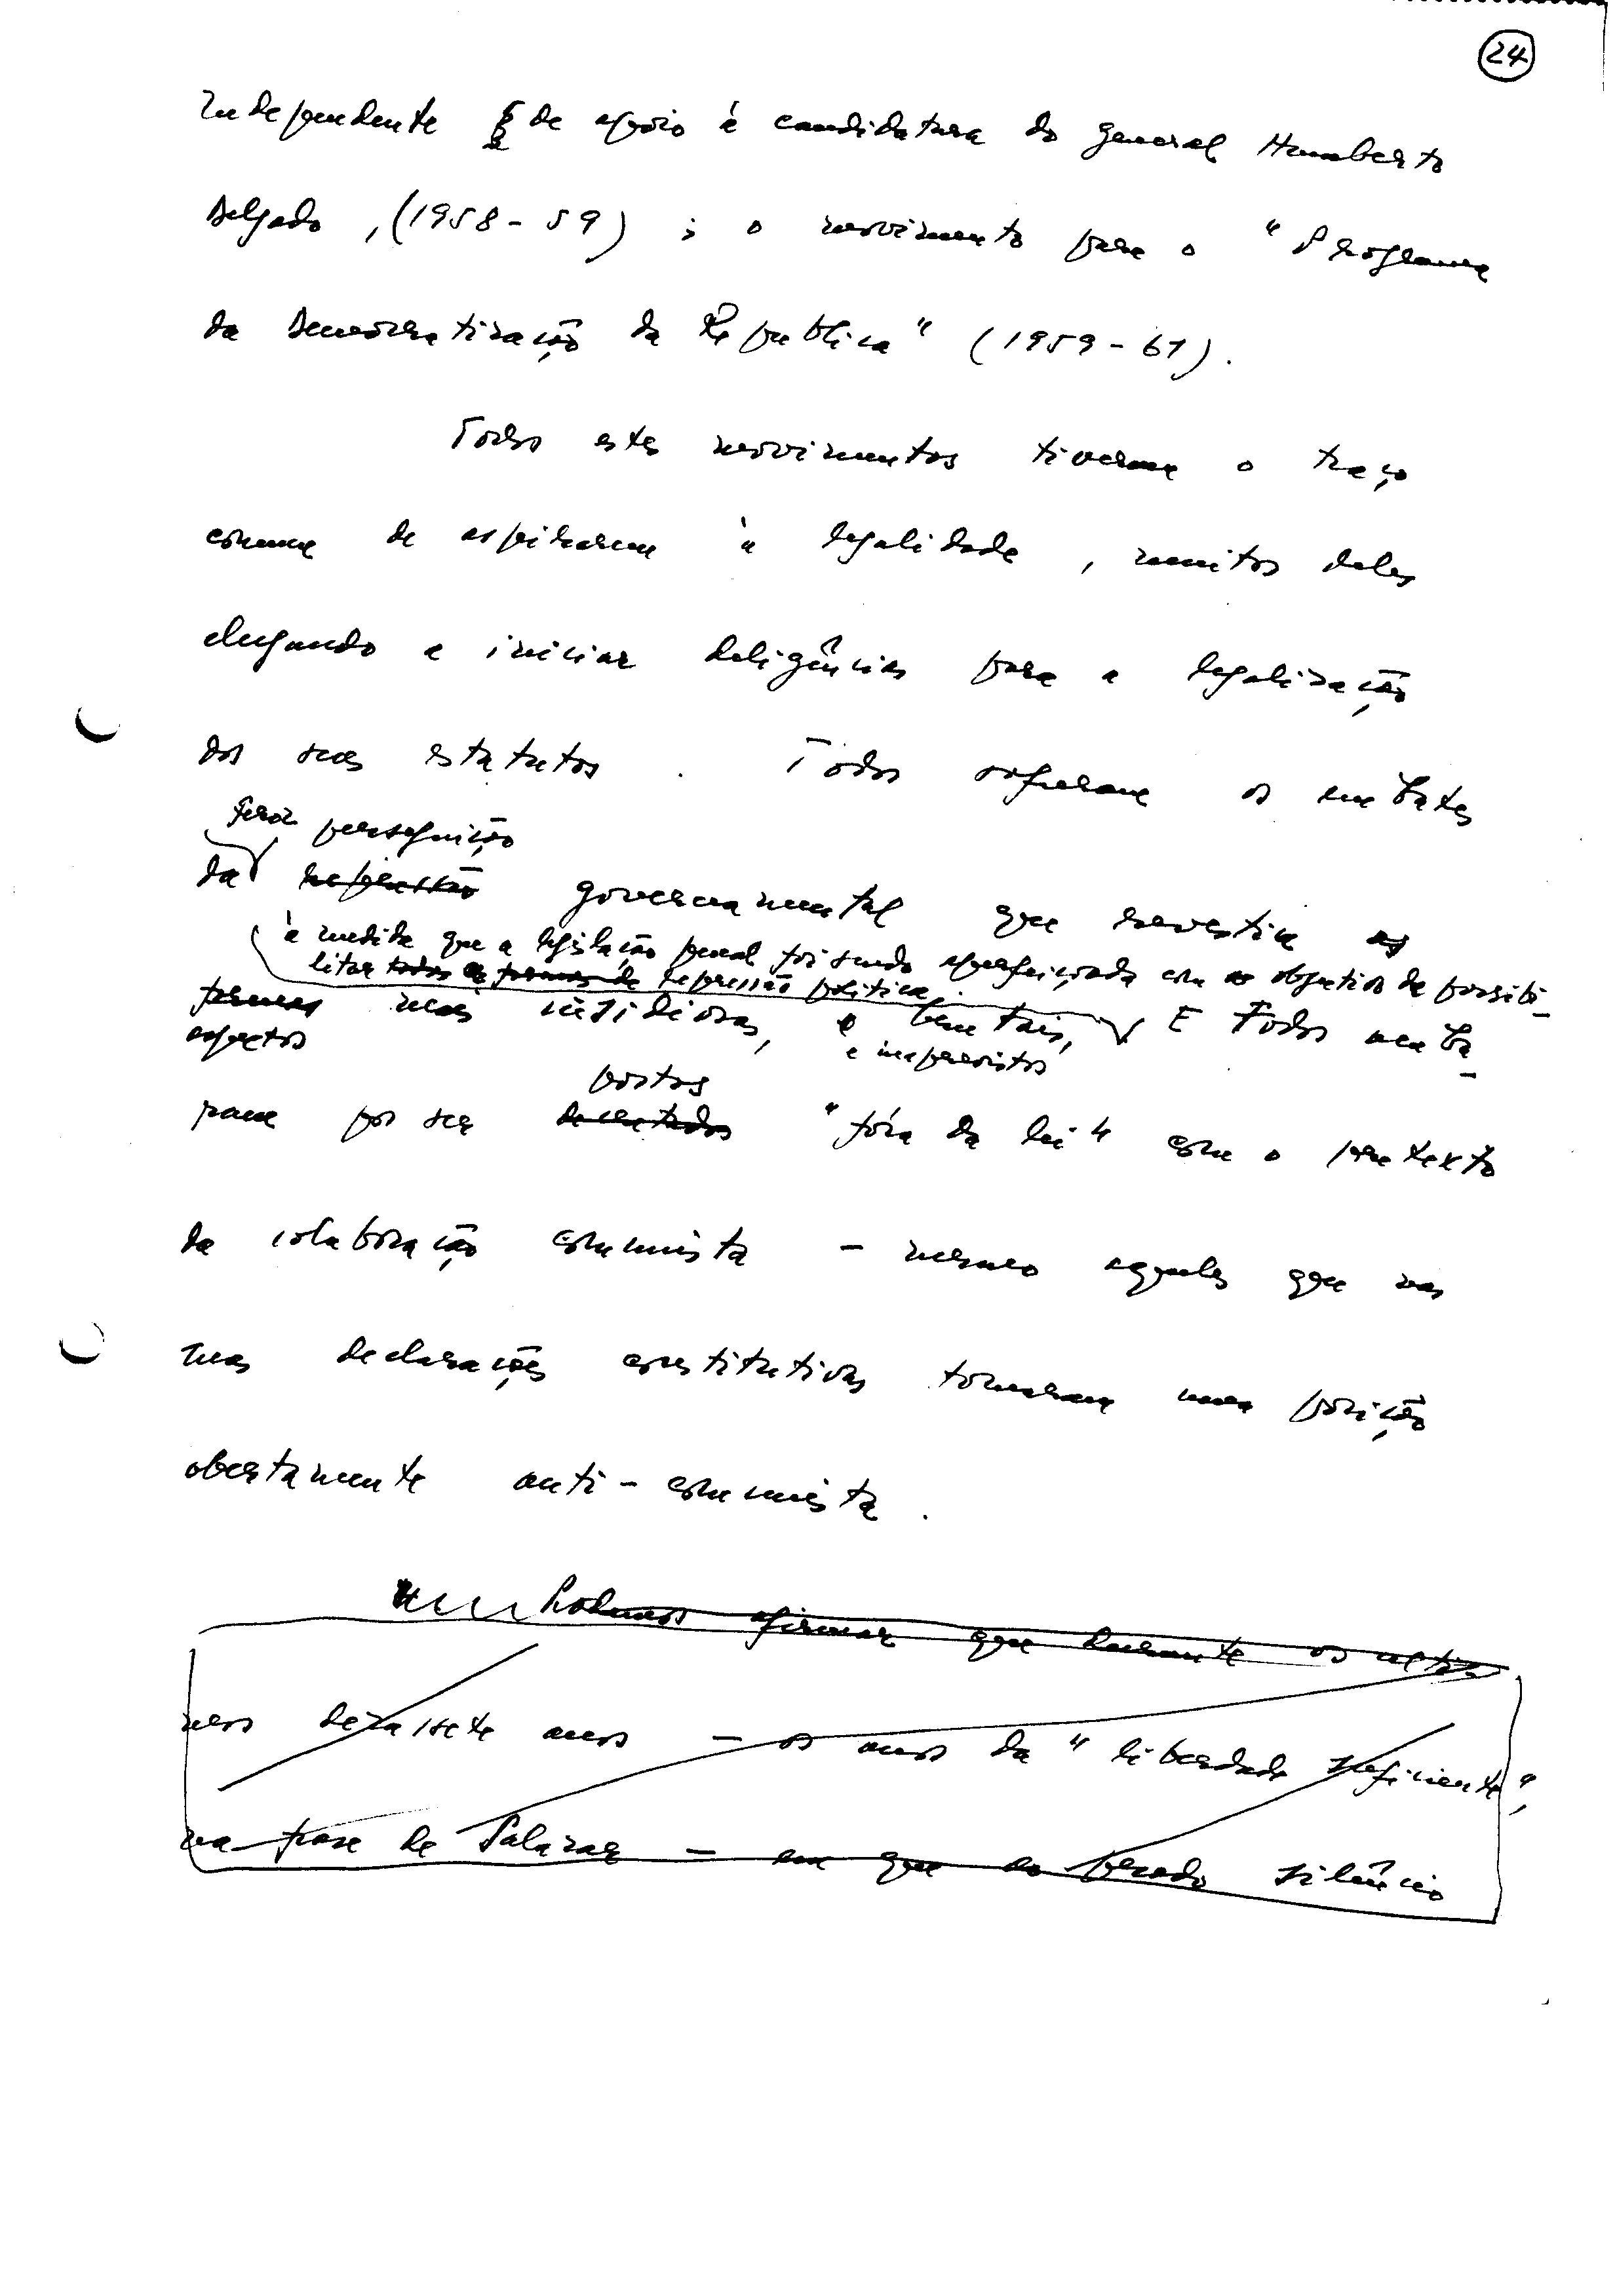 24
Independente de apoio à candidatura do general Humberto
Delgado, (1958-59); o movimento para o "Programa
da Democratização da Republica" (1959-61).
Todos estes movimentos tiveram o traço
comum de aspirarem à legalidade, muitos deles
chegando a iniciar deligências para a legalização
dos seus estatutos. Todos sofreram os embates
feroz perseguição
da repressão governamental que revestiu as
à medida que a legislação penal foi sendo aperfeiçoada com o objectivo de possibi-
litar todas as formas de repressão politica.
formas mais insidiosas, e brutais, E Todos acaba-
aspectos e imprevistos
postos
ram por ser decretados "fóra da lei" com o pretexto
da colaboração comunista - mesmo aqueles que nas
suas declarações constitutivas tomaram uma posição
abertamente anti-comunista.
Podemos afirmar que durante os ulti-
mos dezassete anos - os anos da "liberdade suficiente",
na frase de Salazar - em que ao pesado silêncio